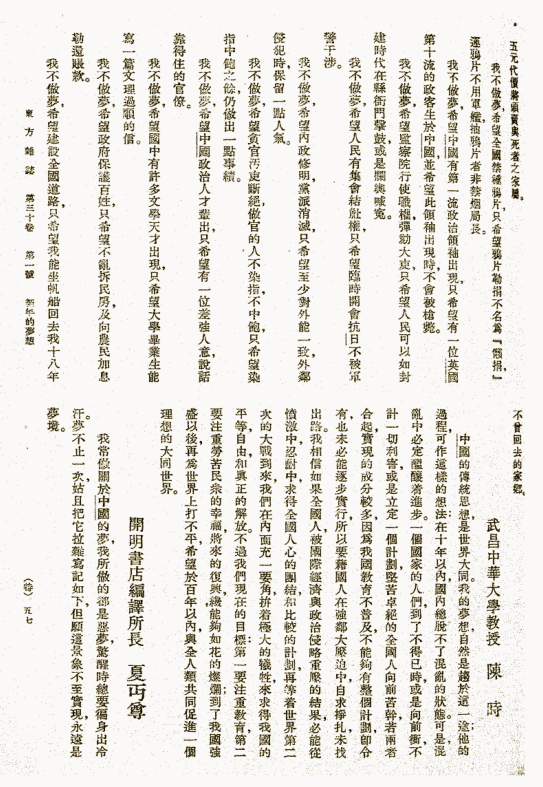 五元代價將頭賣與死者之家屬。
我不做夢希望全國禁種鴉片，只希望鴉片勒捐不名為『懶捐』
運鴉片不用軍艦，抽鴉片者非禁煙局長。
我不做夢希望中國有第一流政治領袖出現，只希望有一位英國
第十流的政客生於中國，並希望此領袖出現時不會被槍斃。
我不做夢希望監察院行使職權，彈劾大吏，只希望人民可以如封
建時代在縣衙門擊鼓，或是攔輿喊冤。
我不做夢希望人民有集會結社權，只希望臨時開會抗日不被軍
警干涉。
我不做夢希望內政修明，黨派消滅，只希望至少對外能一致，外鄰
侵犯時保留一點人氣。
我不做夢希望貪官污吏斷絕，做官的人不染指，不中飽，只希望染
指中飽之餘，仍做出一點事績。
我不做夢希望中國政治人才輩出，只希望有一位差強人意，說話
靠得住的官僚。
我不做夢希望國中有許多文學天才出現，只希望大學畢業生能
寫一篇文理通順的信。
我不做夢希望政府保護百姓，只希望不亂拆民房，及向農民加息
勒還賬款。
我不做夢希望建設全國道路，只希望我能坐帆船回去我十八年
東方雜誌　第三十卷　第一號　新年的夢想
不曾回去的家鄉。
武昌中華大學教授　陳　時
中國的傳統思想，是世界大同。我的夢想，自然是趨於這一途；他的
過程可作這樣的想法：在十年以內，國內總脫不了混亂的狀態，可是混
亂中必定醞釀着進步。一個國家的人們，到了不得已時，或是向前衝不
計一切利害，或是立定一個計劃，堅苦卓絕的全國人向前苦幹，若兩者
合起實現的成分較多。因為我國教育不普及，不能夠有整個計劃，即令
有也未必能逐步實行，所以要藉國人在強鄰大壓迫中，自求掙扎，未找
出路。我相信如果全國人被國際經濟與政治侵略重壓的結果，必能從
憤激中忍耐中求得全國人心的團結和比較的計劃，再等着世界第二
次的大戰到來，我們在內面充一要角，拚着極大的犧牲，來求得我國的
平等自由和真正的解放。不過我們現在的目標：第一要注重教育；第二
要注重勞苦民衆的幸福，將來的復興，纔能夠如花的燦爛；到了我國強
盛以後，再為世界上打不平，希望於百年以內，與全人類共同促進一個
理想的大同世界。
開明書店編譯所長　夏丏尊
我常做關於中國的夢，我所做的都是惡夢，驚醒時總要徧身出冷
汗。夢不止一次，姑且把它拉雜寫記如下，但願這景象不至實現，永遠是
夢境。
五七